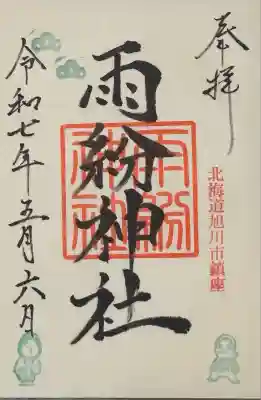 奉拝
北海道旭川市鎮座
雨紛神社
雨紛神社
令和七年五月六月